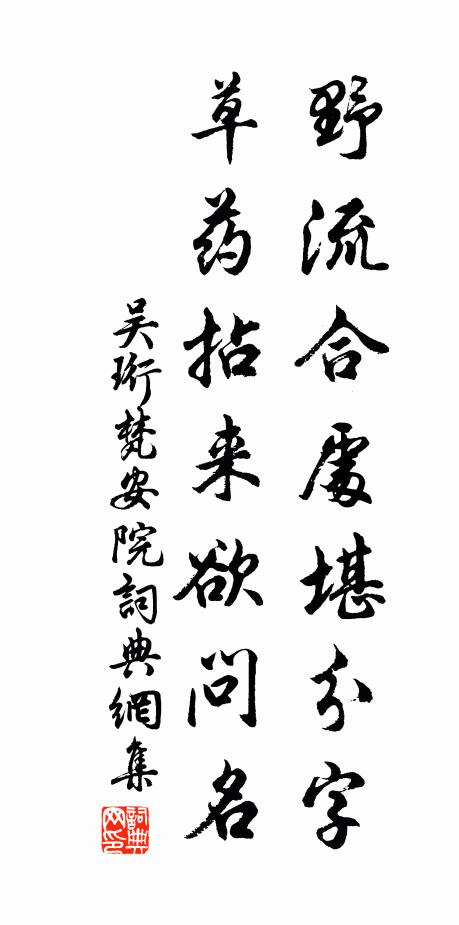 野流合處堪分字
草药拈来欲问名
吴珩梵安院詞典網集
詞典网印